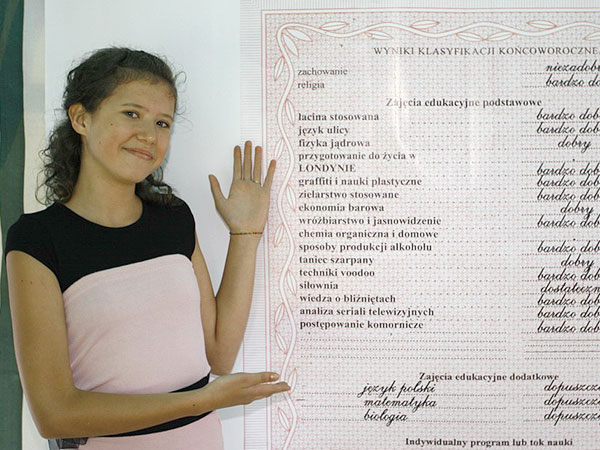 WYNIKI KLASYFIKACJI KOŃCOWOROCZNEJ
zachowanie
religia bardzo
Zajęcia edukacyjne podstawowe
łacina stosowana bardzo
język ulicy bardzo
fizyka jądrowa dobry
przygotowanie do życia w
LONDYNIE bardzo
graffiti i nauki plastyczne bardzo
zielarstwo stosowane bardzo
ekonomia barowa dobry
wróżbiarstwo i jasnowidzenie bardzo
chemia organiczna i domowe
sposoby produkcji alkoholu bardzo
taniec szarpany dobry
techniki voodoo bardzo
siłownia
wiedza o bliźniętach bardzo
analiza seriali telewizyjnych bardzo
postępowanie komornicze bardzo
Zajęcia edukacyjne dodatkowe
język polski
matematyka
biologia
Indywidualny program lub tok nauki